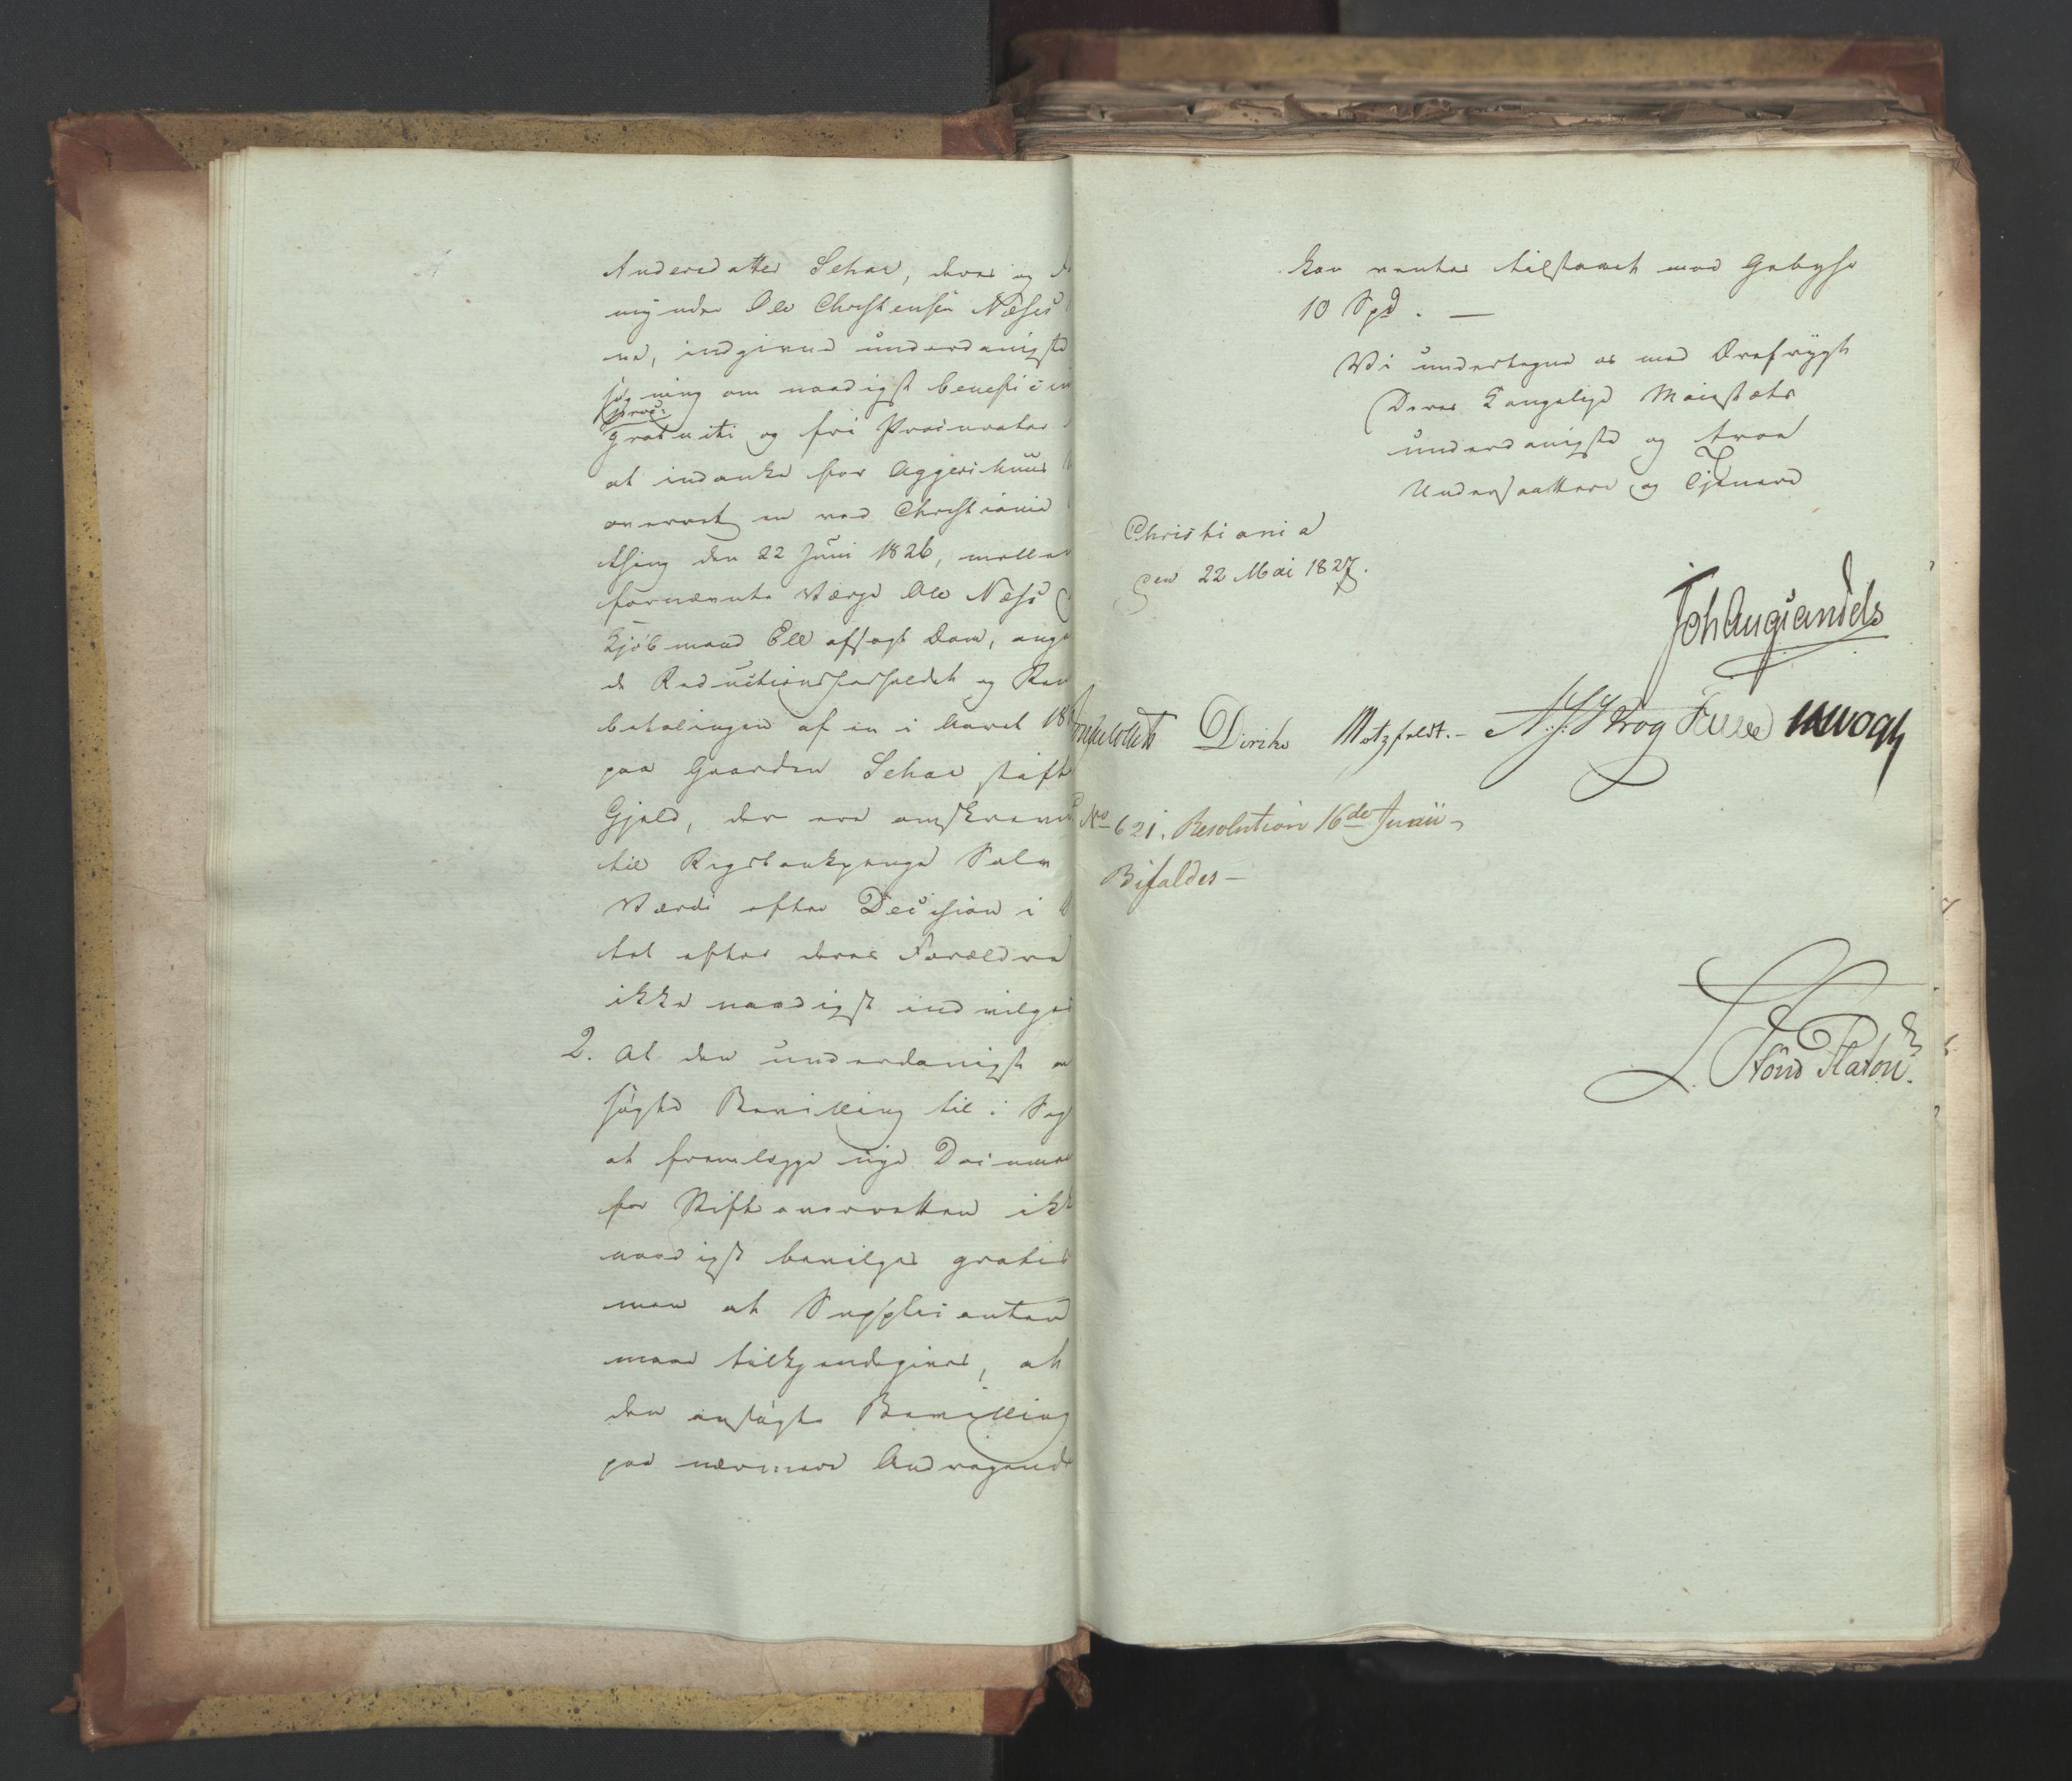 Andersdatter Sehar, deres og
mynder Ole Christensen Næsset
ne, indgivne underdanigste
søgning om naadigst beneficium
proc:
gratuiti og fri Procurator
at indanke for Aggershuus
overret en ved Christiania
thing den 22 Juni 1826, mellem
fornævnte Værge Ole Næss
Kjøbmand Ell afsagt Dom, ang
de Reductionsforholdet og
betalingen af en i Aaret 18
paa Gaarden Sehar stift
Gjeld, der ere omskrevne
til Rigsbankpenge Sølv
Værdi efter Decision i
tet efter deres Forældre
ikke naadigst indvilges
2. At den underdanigst
søgte Bevilling til i Sag
at fremlægge nye Docume
for Stiftsoverretten ikke
naadigst bevilges gratis
men at Supplicanten
maae tilkjendegives, at
den ansøgte Bevilling
paa nærmere Andragende
kan ventes tilstaaet mod Gebyhr
10 Spd. —
Vi undertegne os med Ærefrygt
Deres Kongelige Maiestæts
underdanigste og troe
Undersaattere og Tjenere
Christiania
den 22 Mai 1827.
Joh Aug Sandels
Diriks Motzfeldt.- Krog Fasting JHVogt
No 621. Resolution 16de Junii -
Bifaldes -